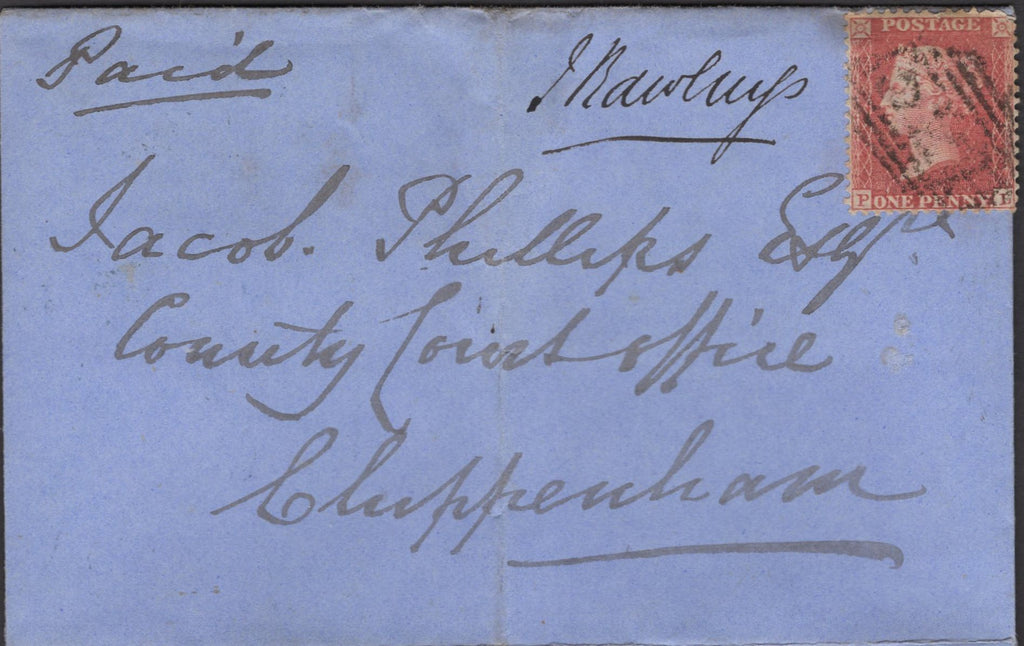 Paid
J Rawlings
POSTAGE
Jacob. Phillips Esqre
P ONE PENNY
County Court office
Chippenham